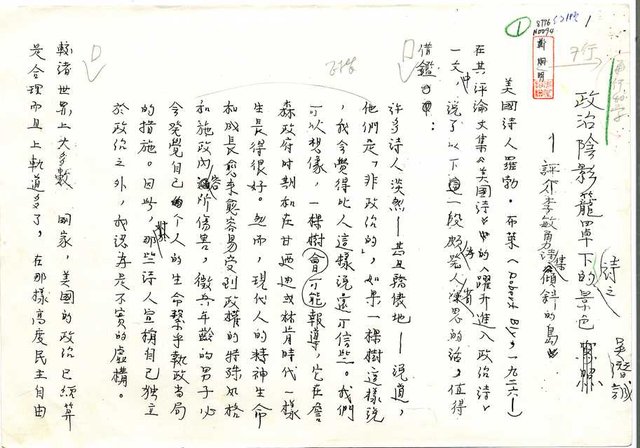 政治陰影籠罩下的景色
詩之
——評介李敏勇詩集《傾斜的島》
吳潛誠
美國詩人羅勃．布萊（Robert Bly，一九二六—）
在其評論文集《美國詩》中的〈躍升進入政治詩〉
一文中，說了以下這一段發人深省的話，值得
借鑑：
許多詩人淡然——甚且驕傲地——說道，
他們是「非政治的」，如果一棵樹這樣說
，我會覺得比人這樣說還可信些。我們
可以想像，一棵樹會可能報導，它在詹
森政府時期和在甘迺迪或林肯時代一樣
生長得很好。然而，現代人的精神生命
和成長愈來愈容易受到政權的特殊風格
和施政內容所傷害，徵兵年齡的男子必
會發覺自己個人的生命繫乎執政當局
的措施。因此，那些詩人宣稱自己獨立
於政治之外，我認為是不實的虛構。
較諸世界上大多數國家，美國的政治已經算
是合理而且上軌道多了，在那樣高度民主自由
1
8776
N0094
鄭炯明
7行